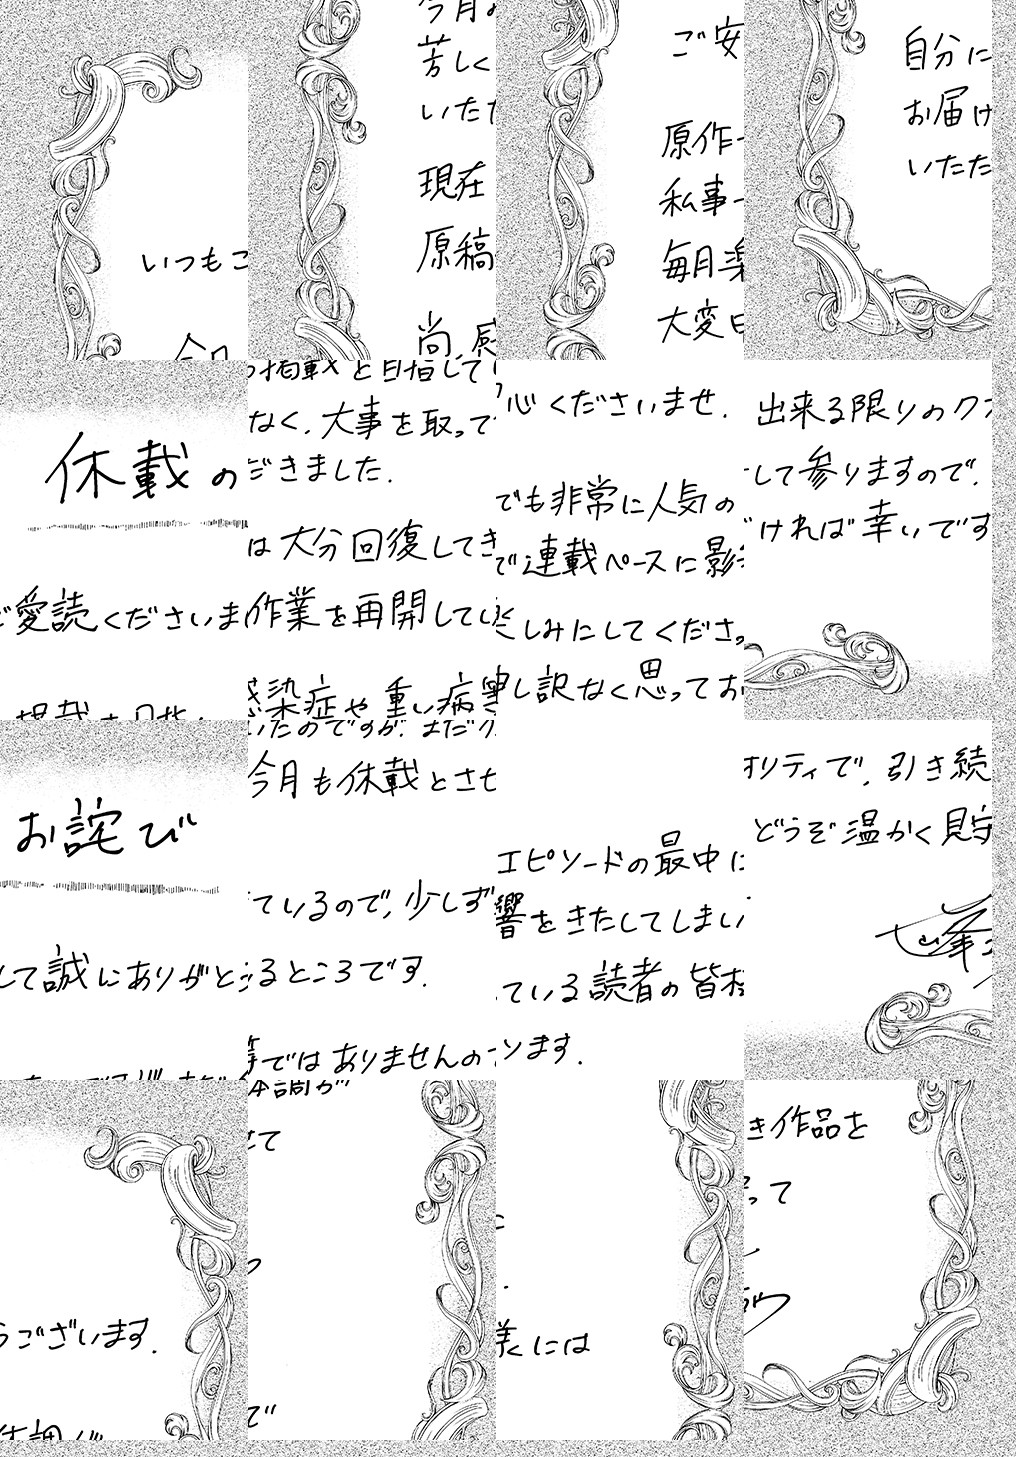 休載のお詫び
いつもご愛読くださいまして誠にありがとうございます.
今月の掲載を目指していたのですが、まだ体調が
芳しくなく、大事を取って今月も休載とさせて
いただきました.
現在は大分回復してきているので、少しずつ
原稿作業を再開しているところです.
尚、感染症や重い病等ではありませんので
ご安心くださいませ.
原作でも非常に人気のエピソードの最中に
私事で連載ペースに影響をきたしてしまい.
毎月楽しみにしてくださっている読者の皆様には
大変申し訳なく思っております.
自分に出来る限りのクオリティで、引き続き作品を
お届けして参りますので、どうぞ温かく見守って
いただければ幸いです